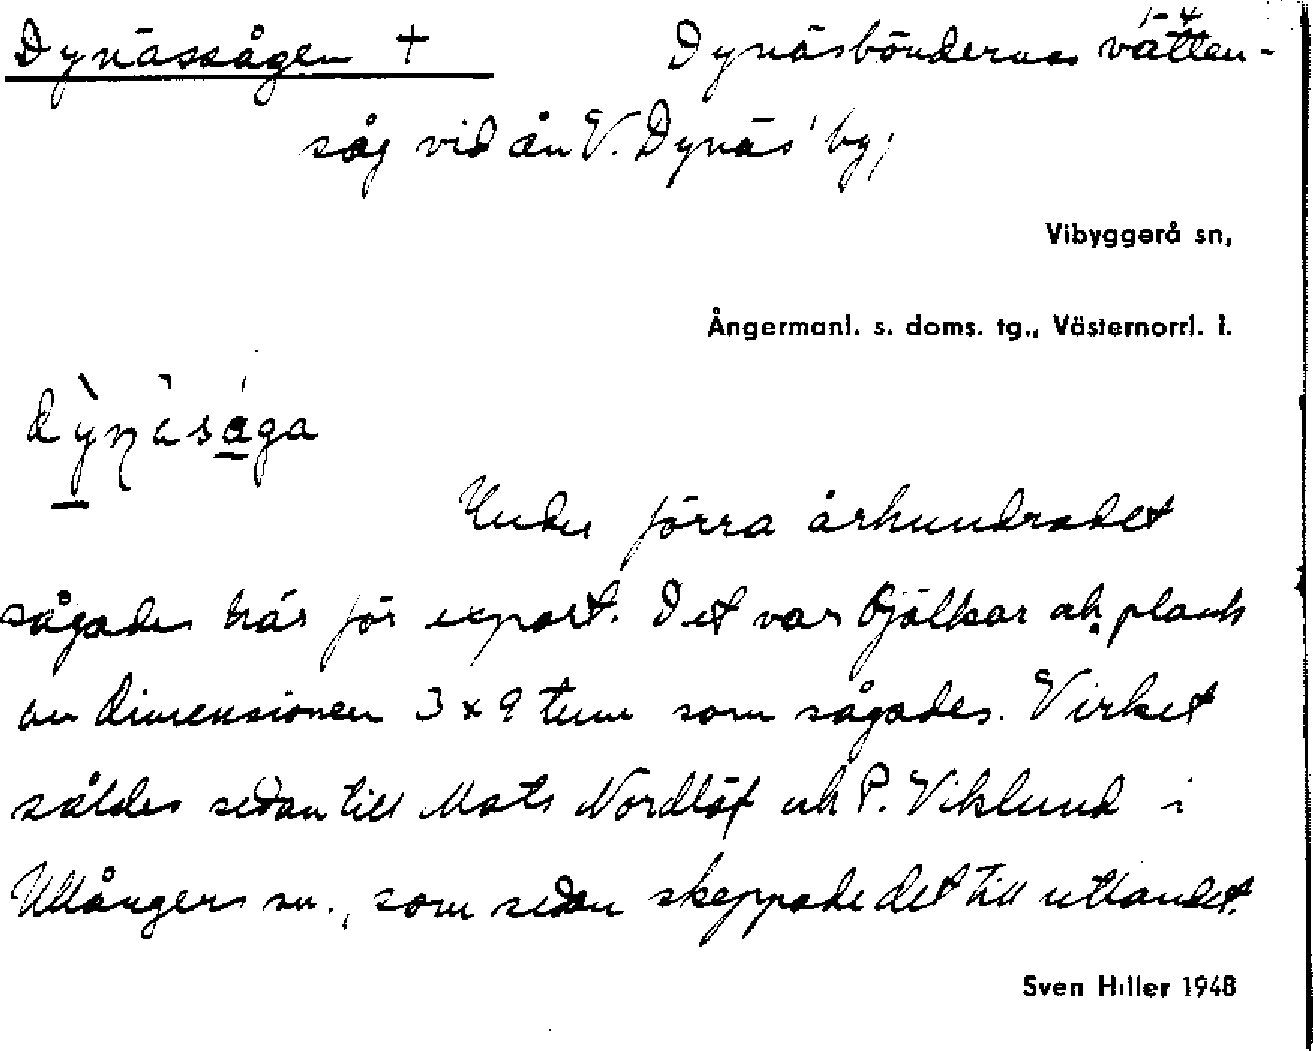 Dynässågen + Dynäsböndernas vatten-
1-4
såg vid ån V. Dynäs' by;
Vibyggerå sn,
Ångermanl. s. doms. tg., Västernorrl. l.
dỳnä̀såga
Under förra århundradet
sågades här för export. Det var bjälkar och plank
av dimensionen 3 x 9 tum som sågades. Virket
såldes sedan till Mats Nordlöf och P. Viklund i
Ullångers sn., som sedan skeppade det till utlandet.
Sven Hiller 1948